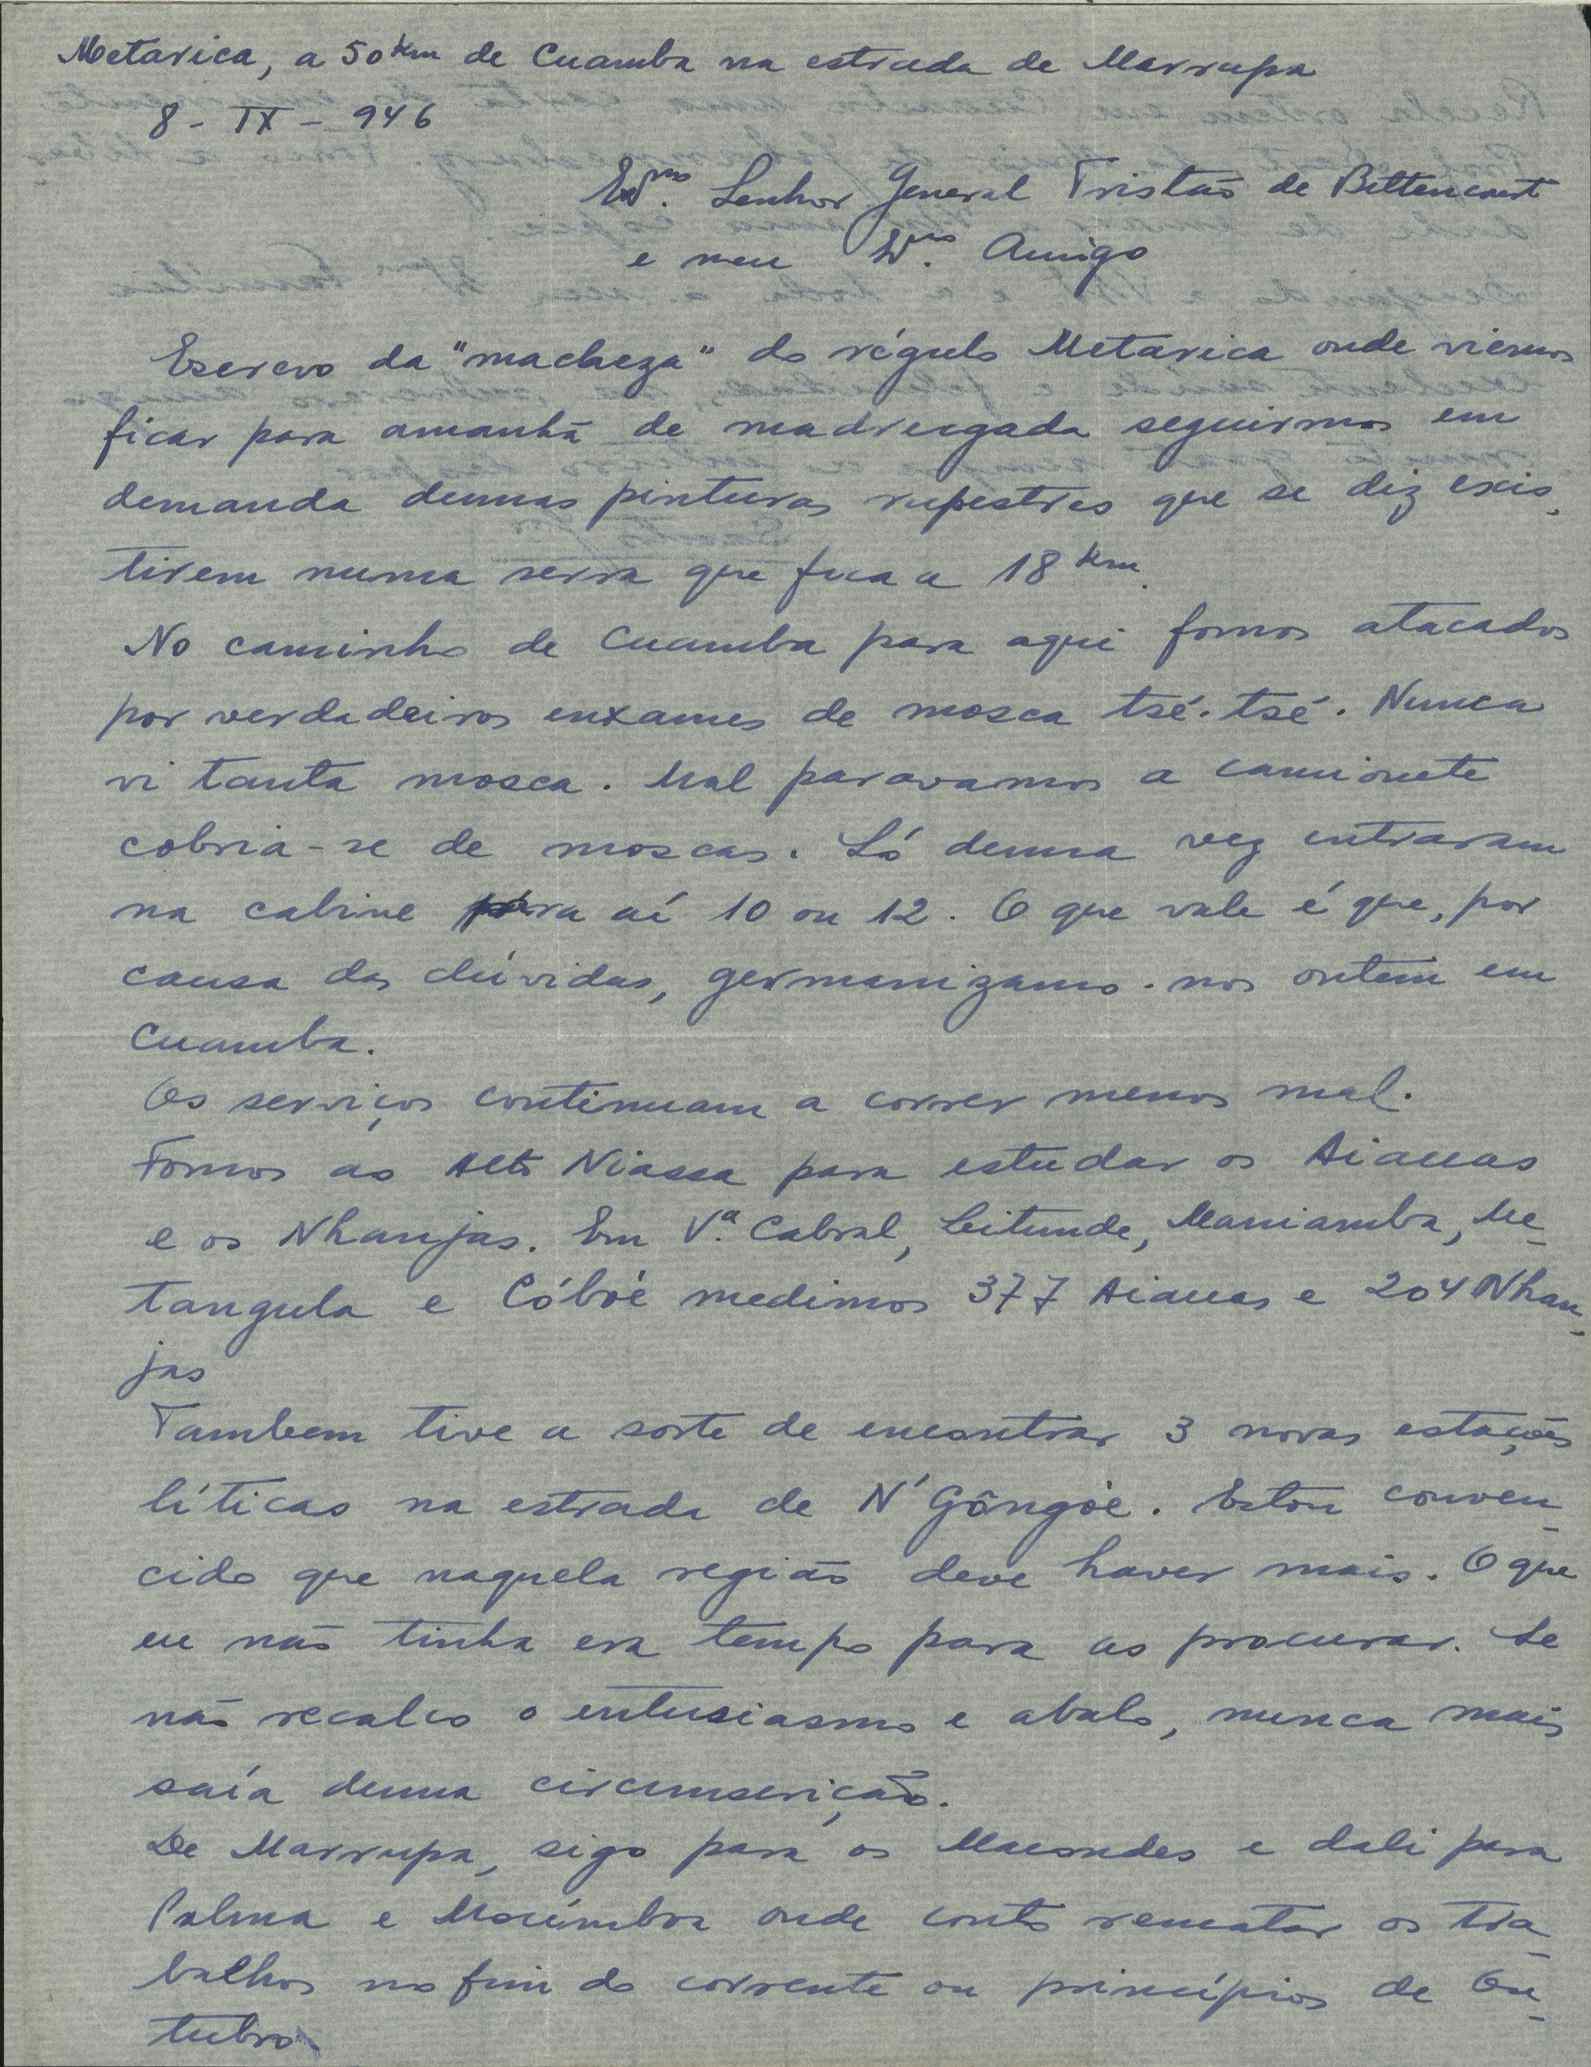 Metarica, a 50 km de Cuamba na estrada de Marrupa
8 - IX - 946
Exmo. Senhor General Tristão de Bettencourt
e meu Exmo. Amigo
Escrevo da "macheza" do régulo Metarica onde viemos
ficar para amanhã de madrugada seguirmos em
demanda dumas pinturas rupestres que se diz exis-
tirem numa serra que fica a 18 km.
No caminho de Cuamba para aqui fomos atacados
por verdadeiros enxames de mosca tsé-tsé. Nunca
vi tanta mosca. Mal paravamos a camionete
cobria-se de moscas. Só duma vez entraram
na cabine para aí 10 ou 12. O que vale é que, por
causa das dúvidas, germanizamo-nos ontem em
Cuamba.
Os serviços continuam a correr menos mal.
Fomos ao Alto Niassa para estudar os Aiauas
e os Nhanjas. Em Vª. Cabral, Litunde, Maniamba, Me-
tangula e Cóbué medimos 377 Aiauas e 204 Nhan-
jas
Tambem tive a sorte de encontrar 3 novas estações
líticas na estrada de N'Gôngóe. Estou conven-
cido que naquela região deve haver mais. O que
eu não tinha era tempo para as procurar. Se
não recalco o entusiasmo e abalo, nunca mais
saía duma circunscrição.
De Marrupa, sigo para os Macondes e dali para
Palma e Mocímboa onde conto rematar os tra-
balhos no fim do corrente ou princípios de Ou-
tubro.